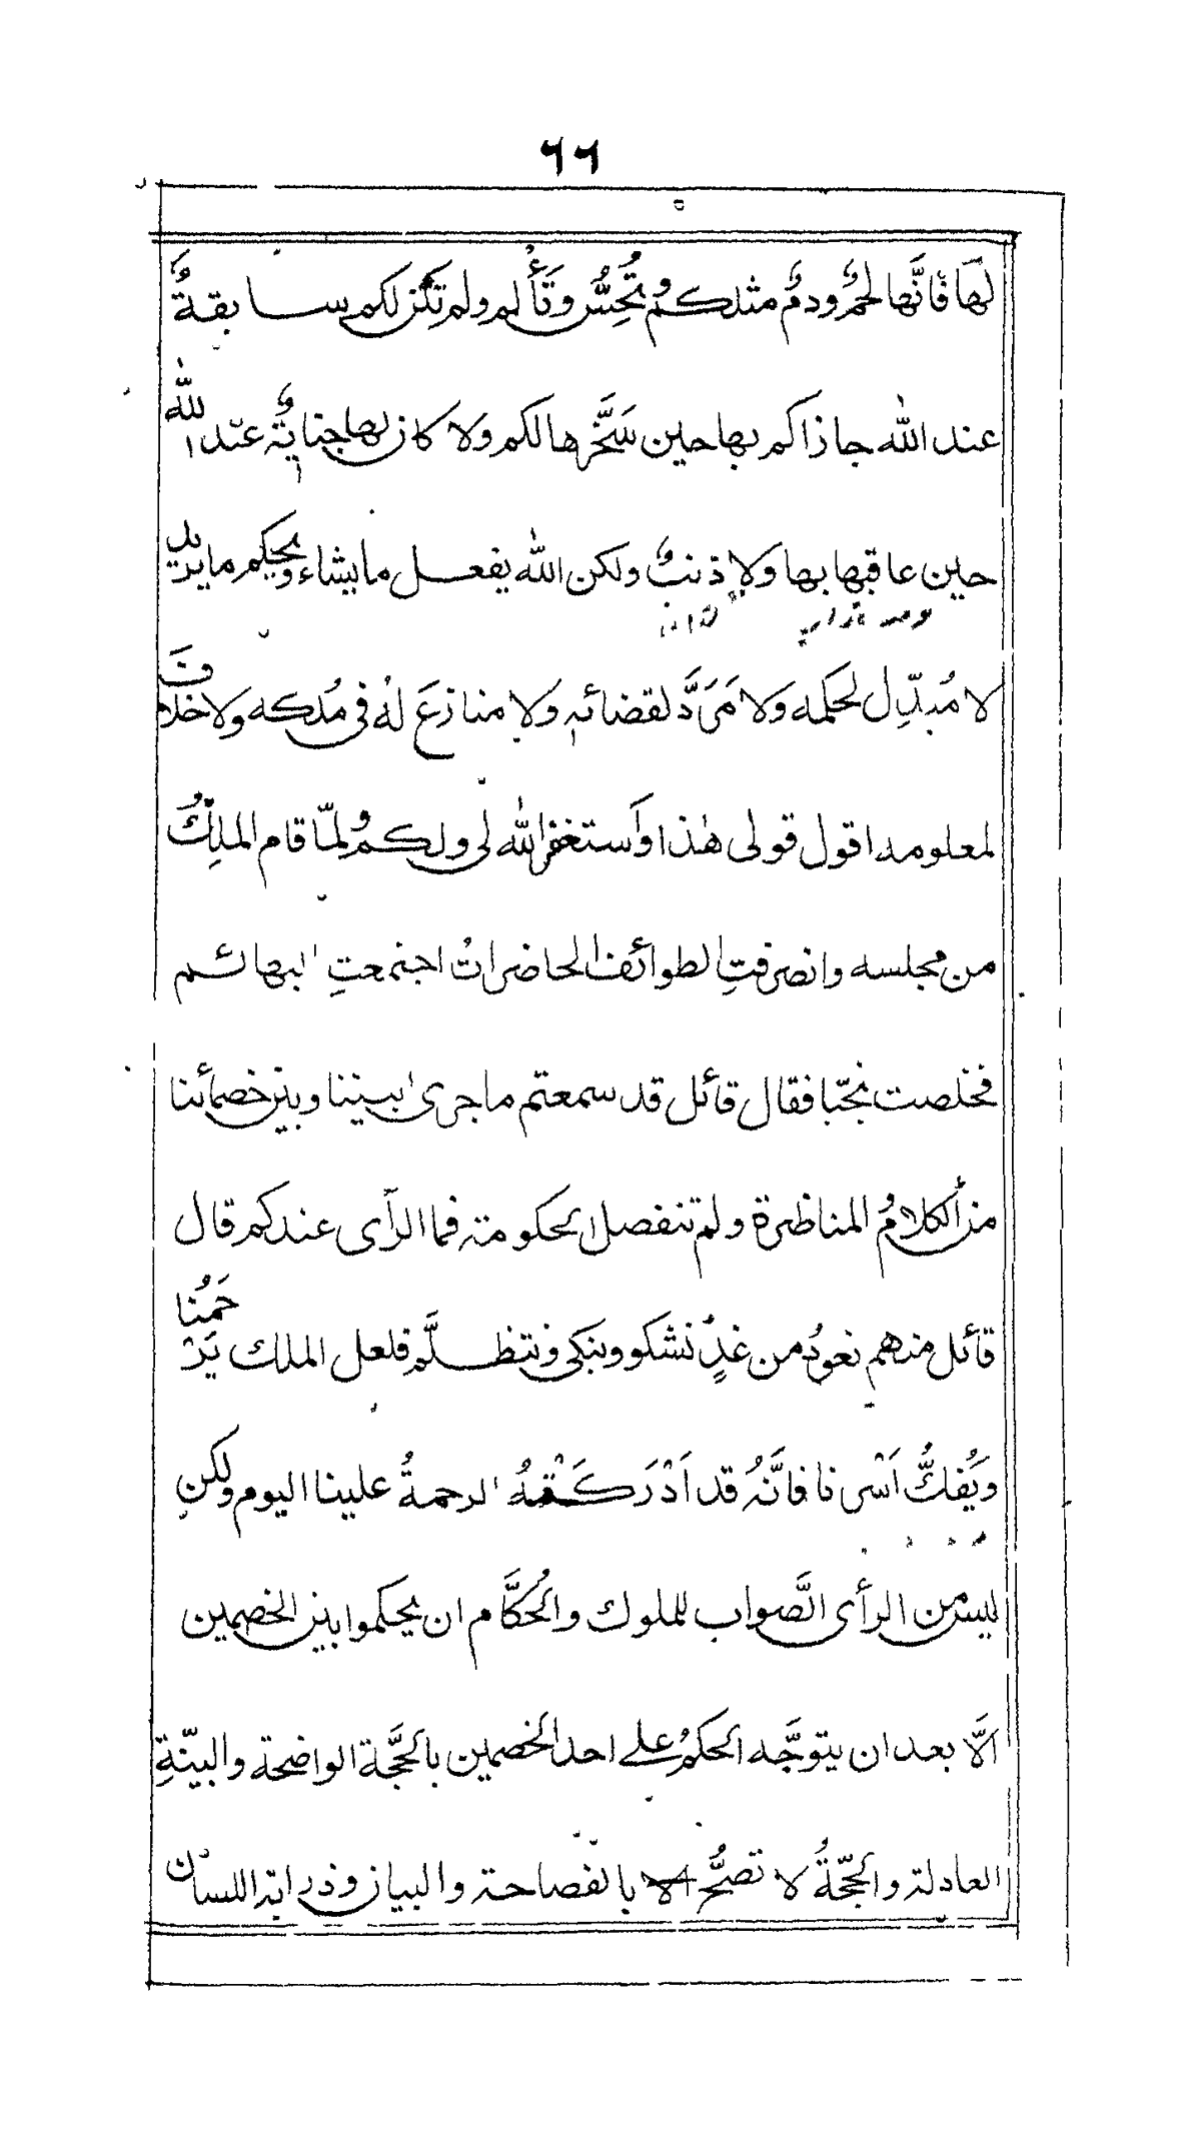 ٦٦
لهَا فانَّها لحمٌ ودمٌ مثلكم تُحِسُّ وتَأْلم ولم تكن لكم سابقةٌ
عند الله جازاكم بها حين سَخَّرها لكم ولا كان لها جنايةٌ عند الله
حين عاقبها بها ولا ذنبٌ ولكن الله يفعل ما يشاء ويحكم ما يريد
لا مُبدِّل لحكمه ولا مَرَدَّ لقضائه ولا منازعَ لهُ فى مُلكه ولا خلافَ
لمعلومه اقول قولى هٰذا وأستغفر الله لى ولكمُ ولمّا قام الملِكُ
من مجلسه وانصرفتِ الطوائف الحاضراتُ اجتمعتِ البهائم
فخلصت نجيّا فقال قائل قد سمعتم ما جرى بيننا وبين خصمائنا
من الكلامُ المناظرة ولم تنفصل الحكومة فما الرأى عندكم قال
قائل منهم نعودُ من غدٍ نشكو ونبكى ونتظلَّم فلعل الملك يَرْحَمُنا
ويَفُكُّ اَسْرنا فانَّهُ قد اَدْرَكَتْهُ الرحمةُ علينا اليوم ولكن
ليس من الرأى الصَّواب للملوك والحُكَّام ان يحكموا بين الخصمين
الَّا بعد ان يتوجَّه الحكمُ على احد الخصمين بالحجَّة الواضحة والبيّنةِ
العادلة والحجّةُ لا تصحُّ الا بالفصاحة والبيان وذرابة اللسان